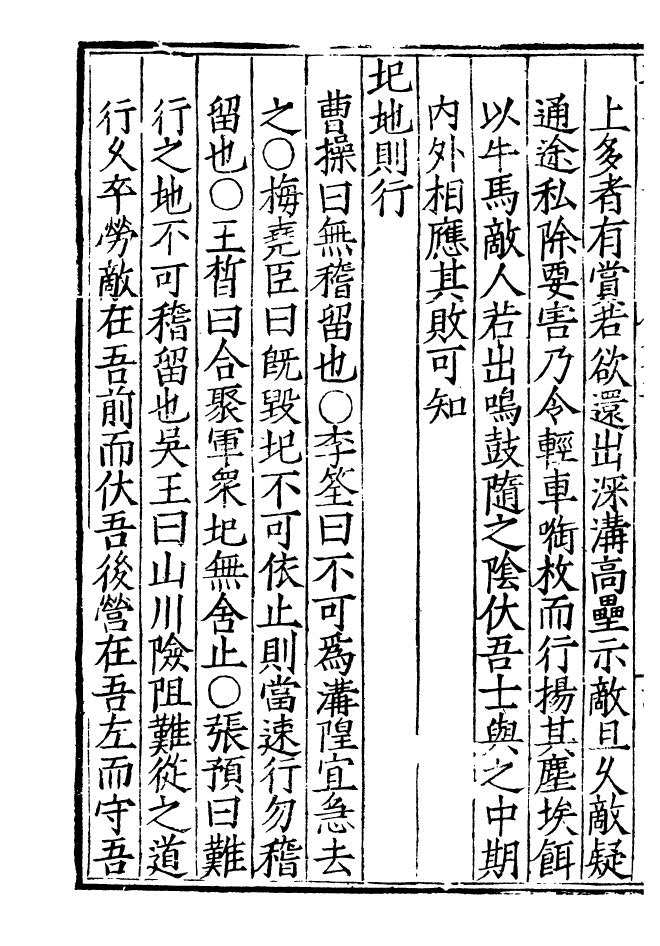 上多者有賞若欲還出深溝高壘示敵且久敵疑
通途私除要害乃令輕車㗸枚而行揚其塵埃餌
以牛馬敵人若出鳴鼓隨之隂伏吾士與之中期
内外相應其敗可知
圯地則行
曹操曰無稽留也○李筌曰不可爲溝隍宜急去
之○梅堯臣曰旣毀圯不可依止則當速行勿稽
留也○王晳曰合聚軍衆圯無舍止○張預曰難
行之地不可稽留也吳王曰山川險阻難從之道
行久卒勞敵在吾前而伏吾後營在吾左而守吾